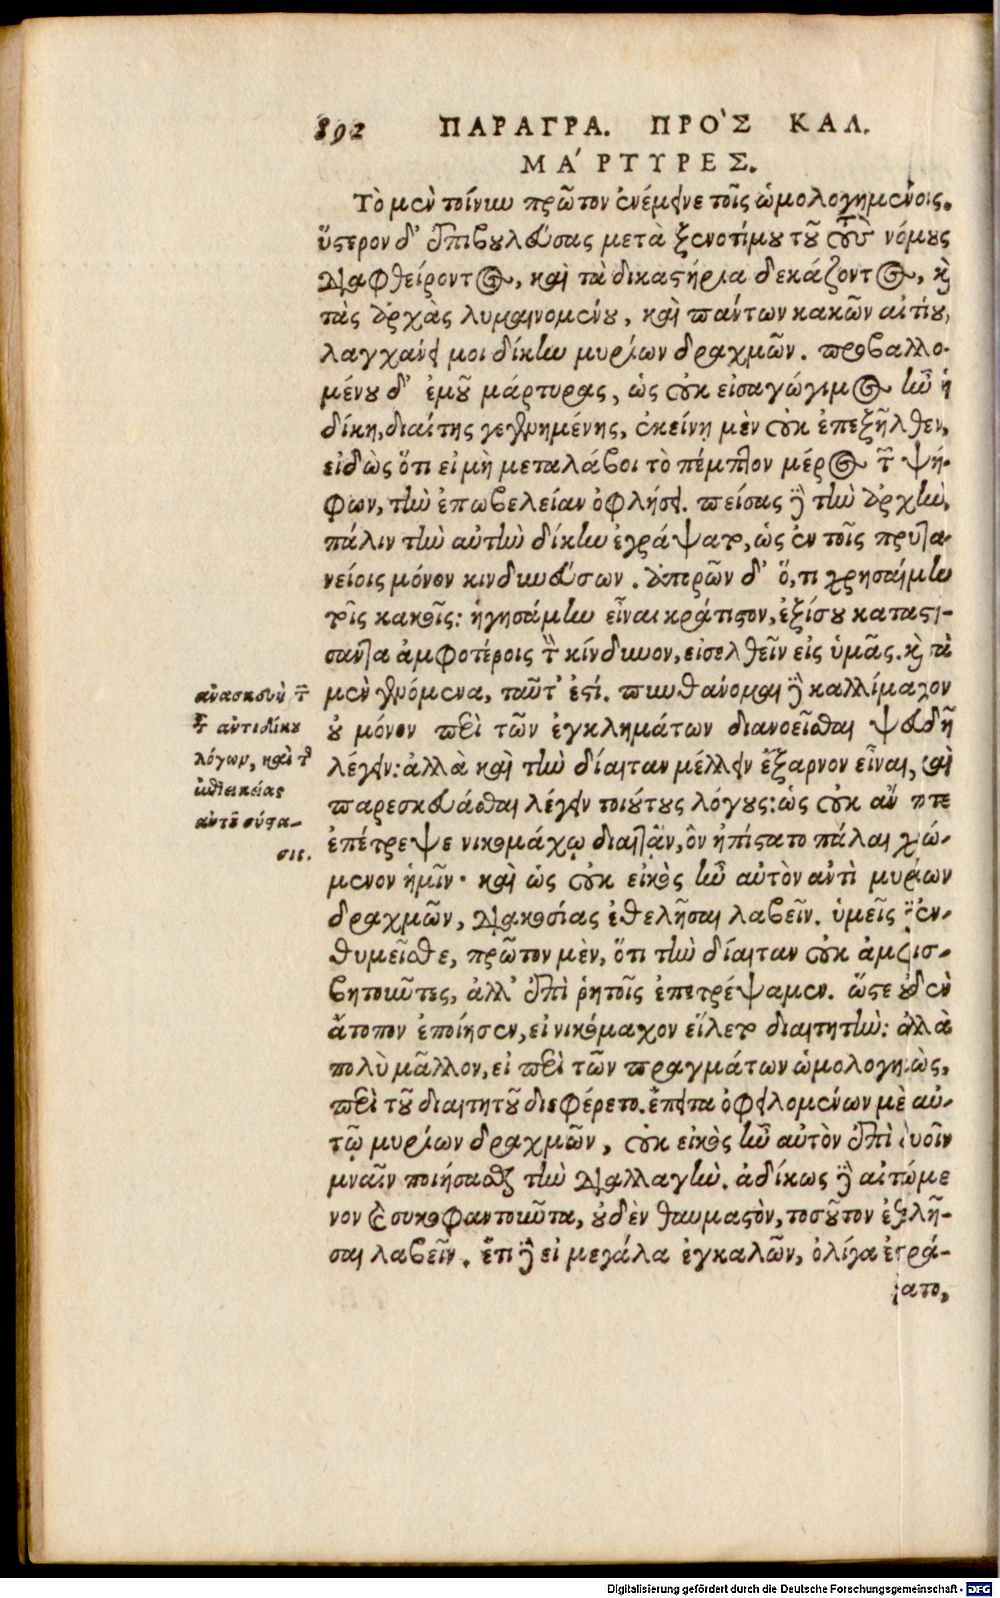 892 ΠΑΡΑΓΡΑ. ΠΡΟ'Σ ΚΑΛ.
ΜΑ'ΡΤΥΡΕΣ.
Τὸ μὲν τοίνυν πρῶτον ἐνέμεινε τοῖς ὡμολογημένοις.
ὕστερον δ' ἐπιβουλεύσας μετὰ ξενοτίμου τοῦ τοὺς νόμους
διαφθείροντος, καὶ τὰ δικαστήρια δεκάζοντος, καὶ
τὰς ἀρχὰς λυμαινομένου, καὶ πάντων κακῶν αἰτίου,
λαγχάνει μοι δίκην μυρίων δραχμῶν. προβαλλο-
μένου δ' ἐμοῦ μάρτυρας, ὡς οὐκ εἰσαγώγιμος ἦν ἡ
δίκη, διαίτης γεγενημένης, ἐκείνῃ μὲν οὐκ ἐπεξῆλθεν,
εἰδὼς ὅτι εἰ μὴ μεταλάβοι τὸ πέμπτον μέρος τῶν ψή-
φων, τὴν ἐπωβελείαν ὀφλήσει. πείσας δὲ τὴν ἀρχὴν,
πάλιν τὴν αὐτὴν δίκην ἐγράψατο, ὡς ἐν τοῖς πρυτα-
νείοις μόνον κινδυνεύσων. ἀπορῶν δ' ὅ, τι χρησαίμην
τοῖς κακοῖς: ἡγησάμην εἶναι κράτιστον, ἐξίσου καταστή-
σαντα ἀμφοτέροις τὸν κίνδυνον, εἰσελθεῖν εἰς ὑμᾶς. καὶ τὰ
μὲν γενόμενα, ταῦτ' ἐστί. πυνθάνομαι δὲ καλλίμαχον
οὐ μόνον περὶ τῶν ἐγκλημάτων διανοεῖσθαι ψευδῆ
λέγειν: ἀλλὰ καὶ τὴν δίαιταν μέλλειν ἔξαρνον εἶναι, καὶ
παρεσκευάσθαι λέγειν τοιούτους λόγους: ὡς οὐκ ἄν ποτε
ἐπέτρεψε νικομάχῳ διαιτᾷν, ὃν ἠπίστατο πάλαι χρώ-
μενον ἡμῖν· καὶ ὡς οὐκ εἰκὸς ἦν αὐτὸν ἀντὶ μυρίων
δραχμῶν, διακοσίας ἐθελῆσαι λαβεῖν. ὑμεῖς δὲ ἐν-
θυμεῖσθε, πρῶτον μὲν, ὅτι τὴν δίαιταν οὐκ ἀμφισ-
βητοῦντες, ἀλλ' ἐπὶ ῥητοῖς ἐπετρέψαμεν. ὥστε οὐδὲν
ἄτοπον ἐποίησεν, εἰ νικόμαχον εἵλετο διαιτητὴν: ἀλλὰ
πολὺ μᾶλλον, εἰ περὶ τῶν πραγμάτων ὡμολογηκὼς,
περὶ τοῦ διαιτητοῦ διεφέρετο. ἔπειτα ὀφειλομένων μὲ αὐ-
τῷ μυρίων δραχμῶν, οὐκ εἰκὸς ἦν αὐτὸν ἐπὶ δυοῖν
μναῖν ποιήσασθαι τὴν διαλλαγήν. ἀδίκως δὲ αἰτώμε
νον καὶ συκοφαντοῦντα, οὐδὲν θαυμαστὸν, τοσοῦτον ἐθελῆ-
σαι λαβεῖν. ἔτι δὲ εἰ μεγάλα ἐγκαλῶν, ὀλίγα ἐπρά-
ξατο,
ἀνασκευὴ τῶν
τοῦ ἀντιδίκου
λόγων, καὶ τῆς
ἐπιεικείας
αὐτοῦ σύστα-
σις.
Digitalisierung gefördert durch die Deutsche Forschungsgemeinschaft - DFG